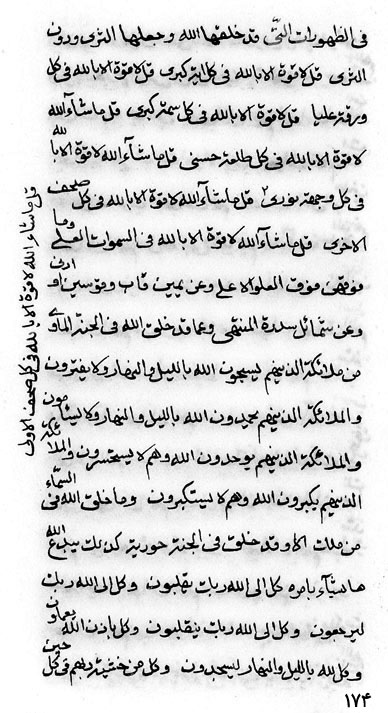 فی الظهورات التی قد خلقها الله و جعلها الذری و دون
الذری قل لا قوة الا بالله فی کل الیة کبری قل لا قوة الا بالله فی کل
ورقة علیا قل لا قوة الا بالله فی کل سمة کبری قل ما شآء الله
لا قوة الا بالله فی کل طلعة حسنی قل ما شآء الله لا قوة الا بالله
فی کل وجهة قل ما شآء الله لا قوة الا بالله فی کل صحف
الاخری قل ما شآء الله لا قوة الا بالله فی السموات العلی وما
فوقهن فوق العلو الاعلی وعن یمین قاب وقوسین او ادنی
وعن شمائل سدرة المنتهی وعما قد خلق الله فی الجنة الماوی
من ملائکة الذینهم یسبحون الله باللیل والنهار ولا یفترون
والملائکة الذینهم یحمدون الله باللیل والنهار ولا یسئامون
والملائکة الذینهم یوحدون الله وهم لا یستحسرون والملائکة
الذینهم یکبرون الله وهم لا یستکبرون وما خلق الله فی السمآء
من ملک الا وقد خلق فی الجنة حوریة کذلک یبدع الله
ما یشآء بامره کل الی الله ربک یقلبون وکل الی الله ربک
لیرجعون وکل الی الله ربک ینقلبون وکل باذن الله یعملون
وکل لله باللیل والنهار لیسجدون وکل من خشیة ربهم فی کل حین
قل ما شاء الله لا قوة الا بالله فی کل صحف الاولی
۱۷۴